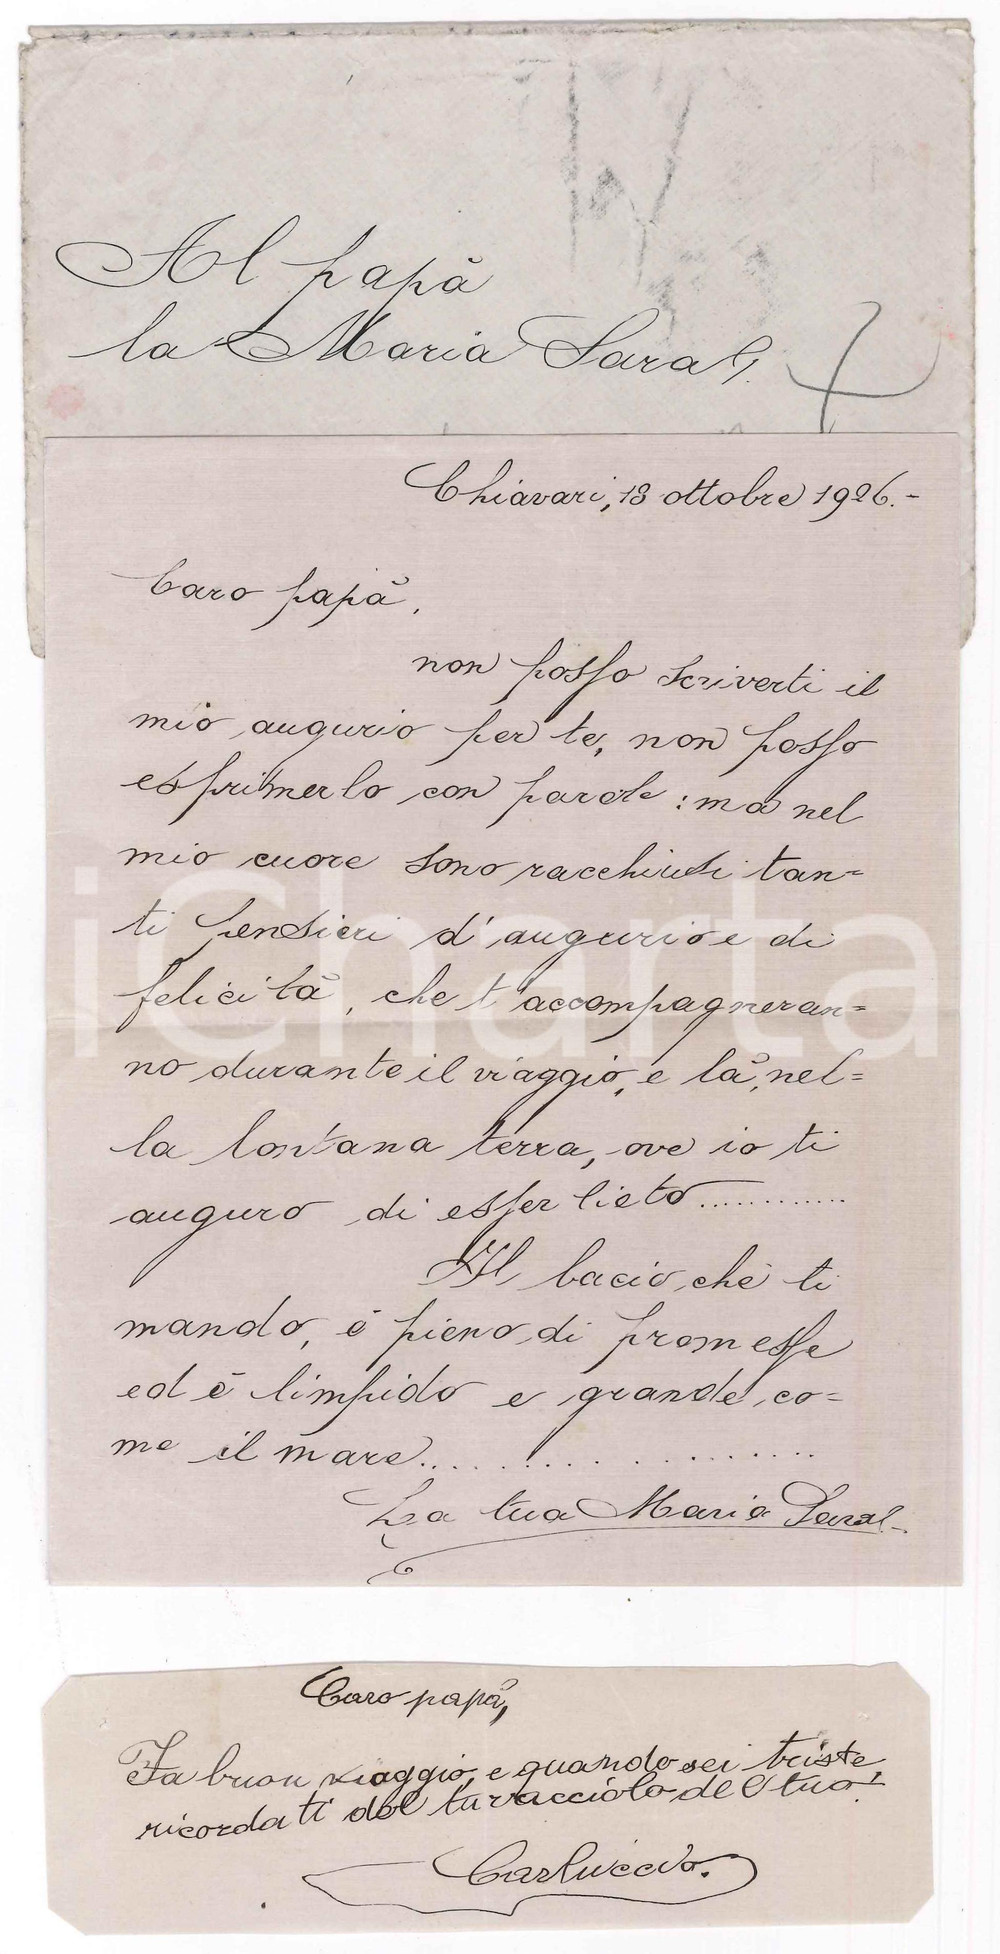 Al papà
la Maria Sara G.
Chiavari, 13 ottobre 1926.-
Caro papà,
non posso scriverti il
mio augurio per te, non posso
esprimerlo con parole: ma nel
mio cuore sono racchiusi tan=
ti pensieri d'augurio e di
felicità, che t'accompagneran=
no durante il viaggio, e là, nel=
la lontana terra, ove io ti
auguro di esser lieto............
Il bacio che ti
mando, è pieno di promesse
ed è limpido e grande, co=
me il mare....................
La tua Maria Sara
Caro papà,
Fa buon viaggio, e quando sei triste,
ricordati del turacciolo del tuo
Carluccio.
iCharta